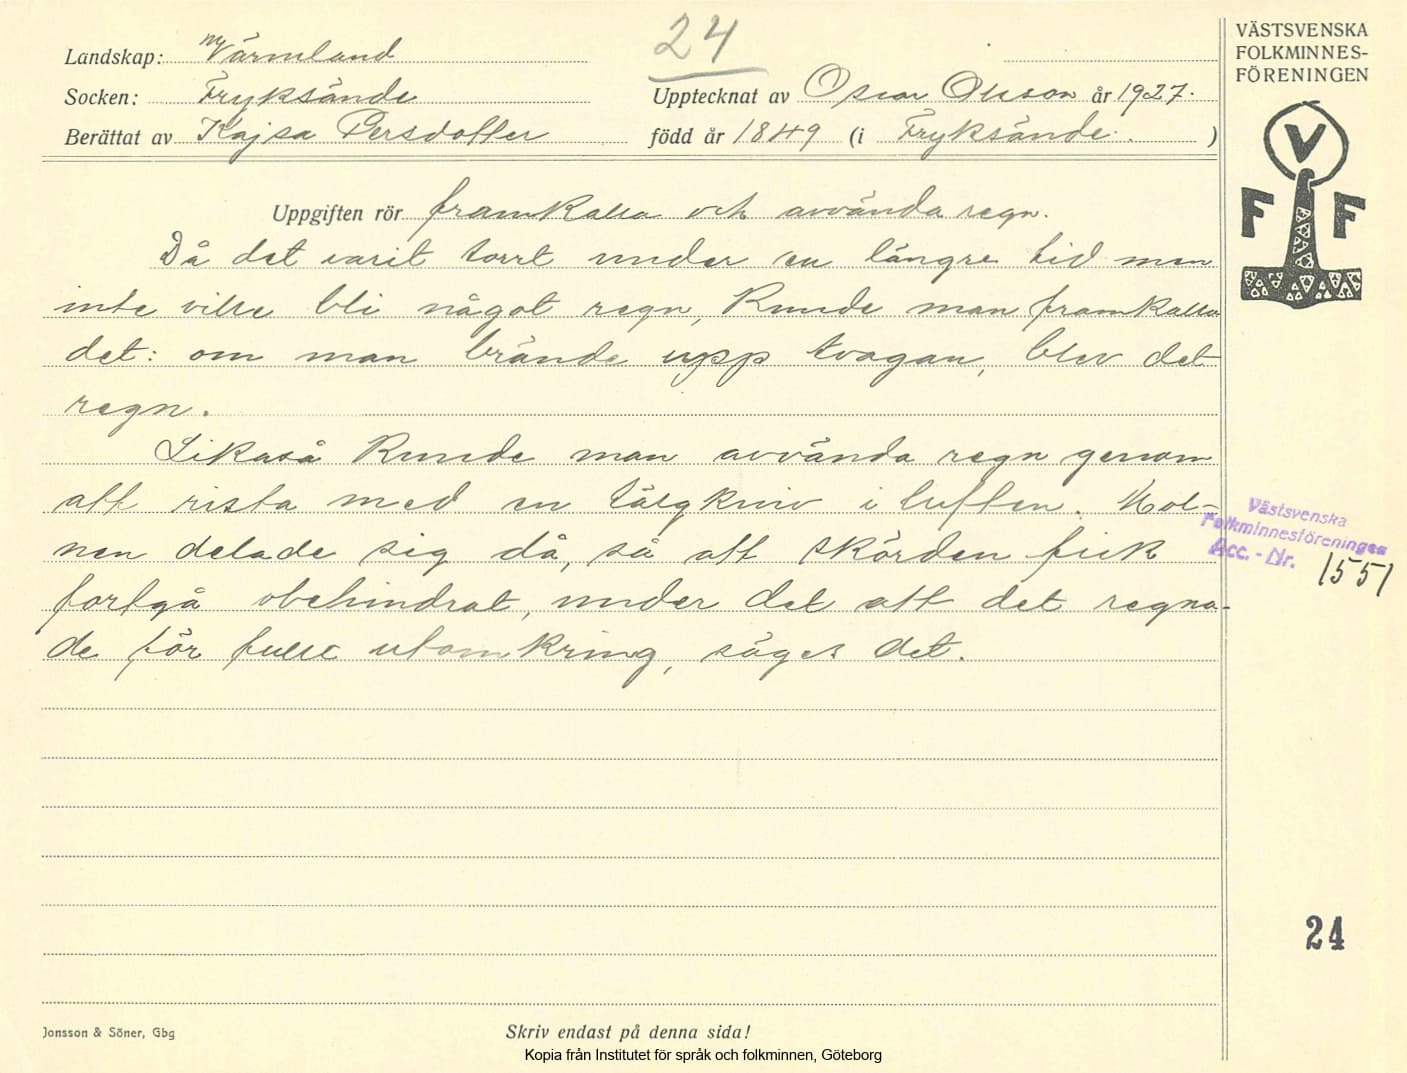 24
VÄSTSVENSKA
FOLKMINNES-
FÖRENINGEN
Landskap: Värmland
Socken: Fryksände
Upptecknat av Oscar Olsson år 1927.
Berättat av Kajsa Persdotter
född år 1849 (i Fryksände.)
V
F F
Uppgiften rör framkalla och avvända regn.
Då det varit torrt under en längre tid men
inte ville bli något regn, kunde man framkalla
det: om man brände upp tvagan, blev det
regn.
Likaså kunde man avvända regn genom
att rista med en tälgkniv i luften. Mol-
nen delade sig då, så att skörden fick
fortgå obehindrat, under det att det regna-
de för fullt utomkring, säges det.
Västsvenska
Folkminnesföreningen
Acc. - Nr. 1551
24
Jonsson & Söner, Gbg
Skriv endast på denna sida!
Kopia från Institutet för språk och folkminnen, Göteborg